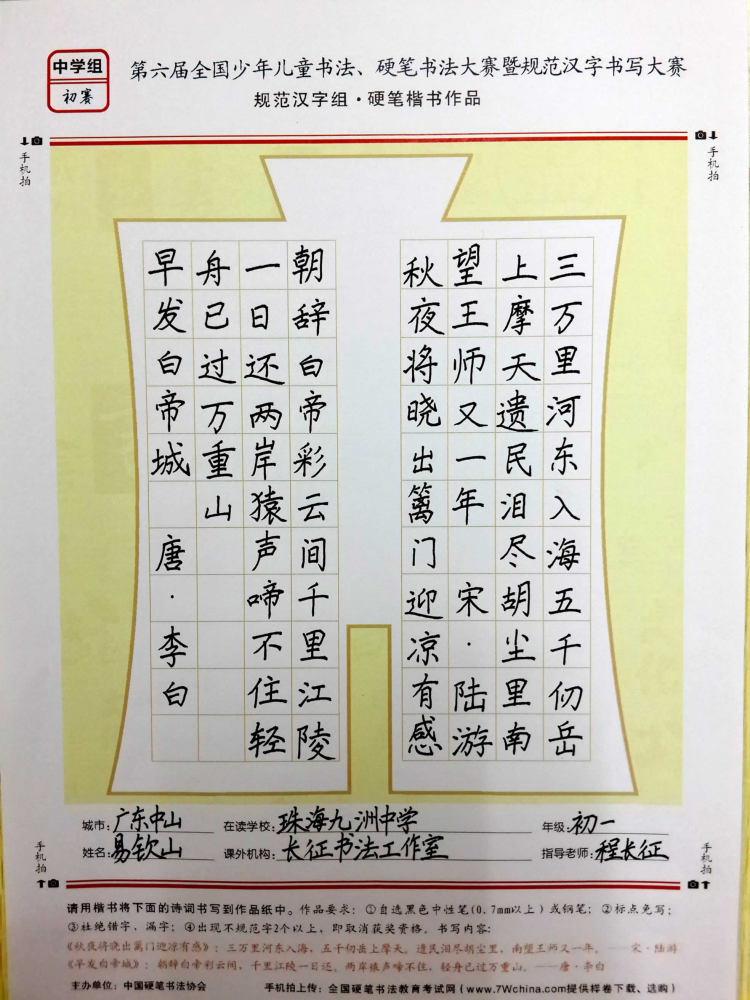 中学组
初赛
第六届全国少年儿童书法、硬笔书法大赛暨规范汉字书写大赛
规范汉字组·硬笔楷书作品
手机拍
手机拍
三万里河东入海五千仞岳
上摩天遗民泪尽胡尘里南
望王师又一年 宋·陆游
秋夜将晓出篱门迎凉有感
朝辞白帝彩云间千里江陵
一日还两岸猿声啼不住轻
舟已过万重山
早发白帝城 唐·李白
城市:广东中山 在读学校:珠海九洲中学 年级:初一
姓名:易钦山 课外机构:长征书法工作室 指导老师:程长征
手机拍
手机拍
请用楷书将下面的诗词书写到作品纸中。作品要求:①自选黑色中性笔(0.7mm以上)或钢笔;②标点免写;
③杜绝错字、漏字;④出现不规范字2个以上,即取消获奖资格。书写内容:
《秋夜将晓出篱门迎凉有感》:三万里河东入海,五千仞岳上摩天。遗民泪尽胡尘里,南望王师又一年。——宋·陆游
《早发白帝城》:朝辞白帝彩云间,千里江陵一日还。两岸猿声啼不住,轻舟已过万重山。——唐·李白
主办单位:中国硬笔书法协会 手机拍上传:全国硬笔书法教育考试网(www.7Wchina.com提供样卷下载、选购)